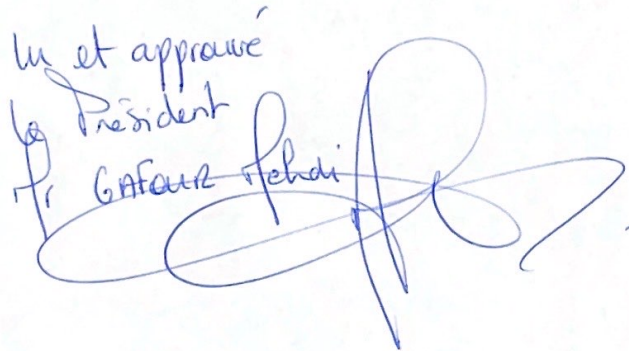 lu et approuvé
Le Président
Mr GAFOUR Mehdi